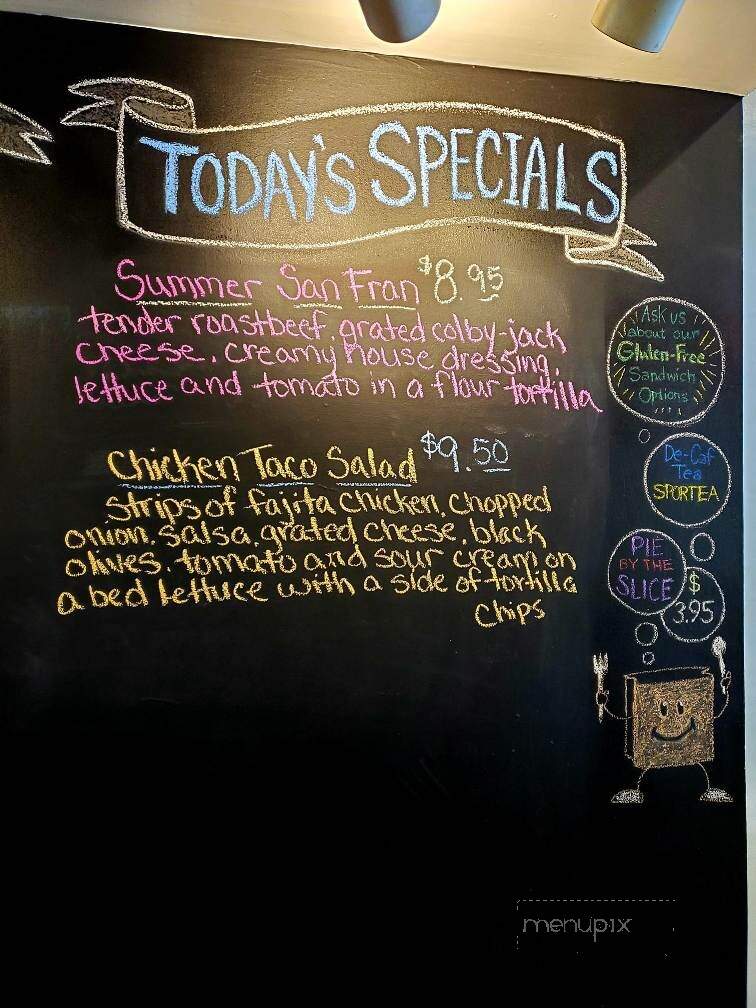 TODAY'S SPECIALS
Summer San Fran $8.95
tender roastbeef, grated colby-jack
cheese, creamy house dressing,
lettuce and tomato in a flour tortilla
Chicken Taco Salad $9.50
strips of fajita chicken, chopped
onion, salsa, grated cheese, black
olives, tomato and sour cream on
a bed lettuce with a side of tortilla
chips
Ask us
about our
Gluten-Free
Sandwich
Options
De-Caf
Tea
SPORTEA
PIE
BY THE
SLICE
$
3.95
menupix